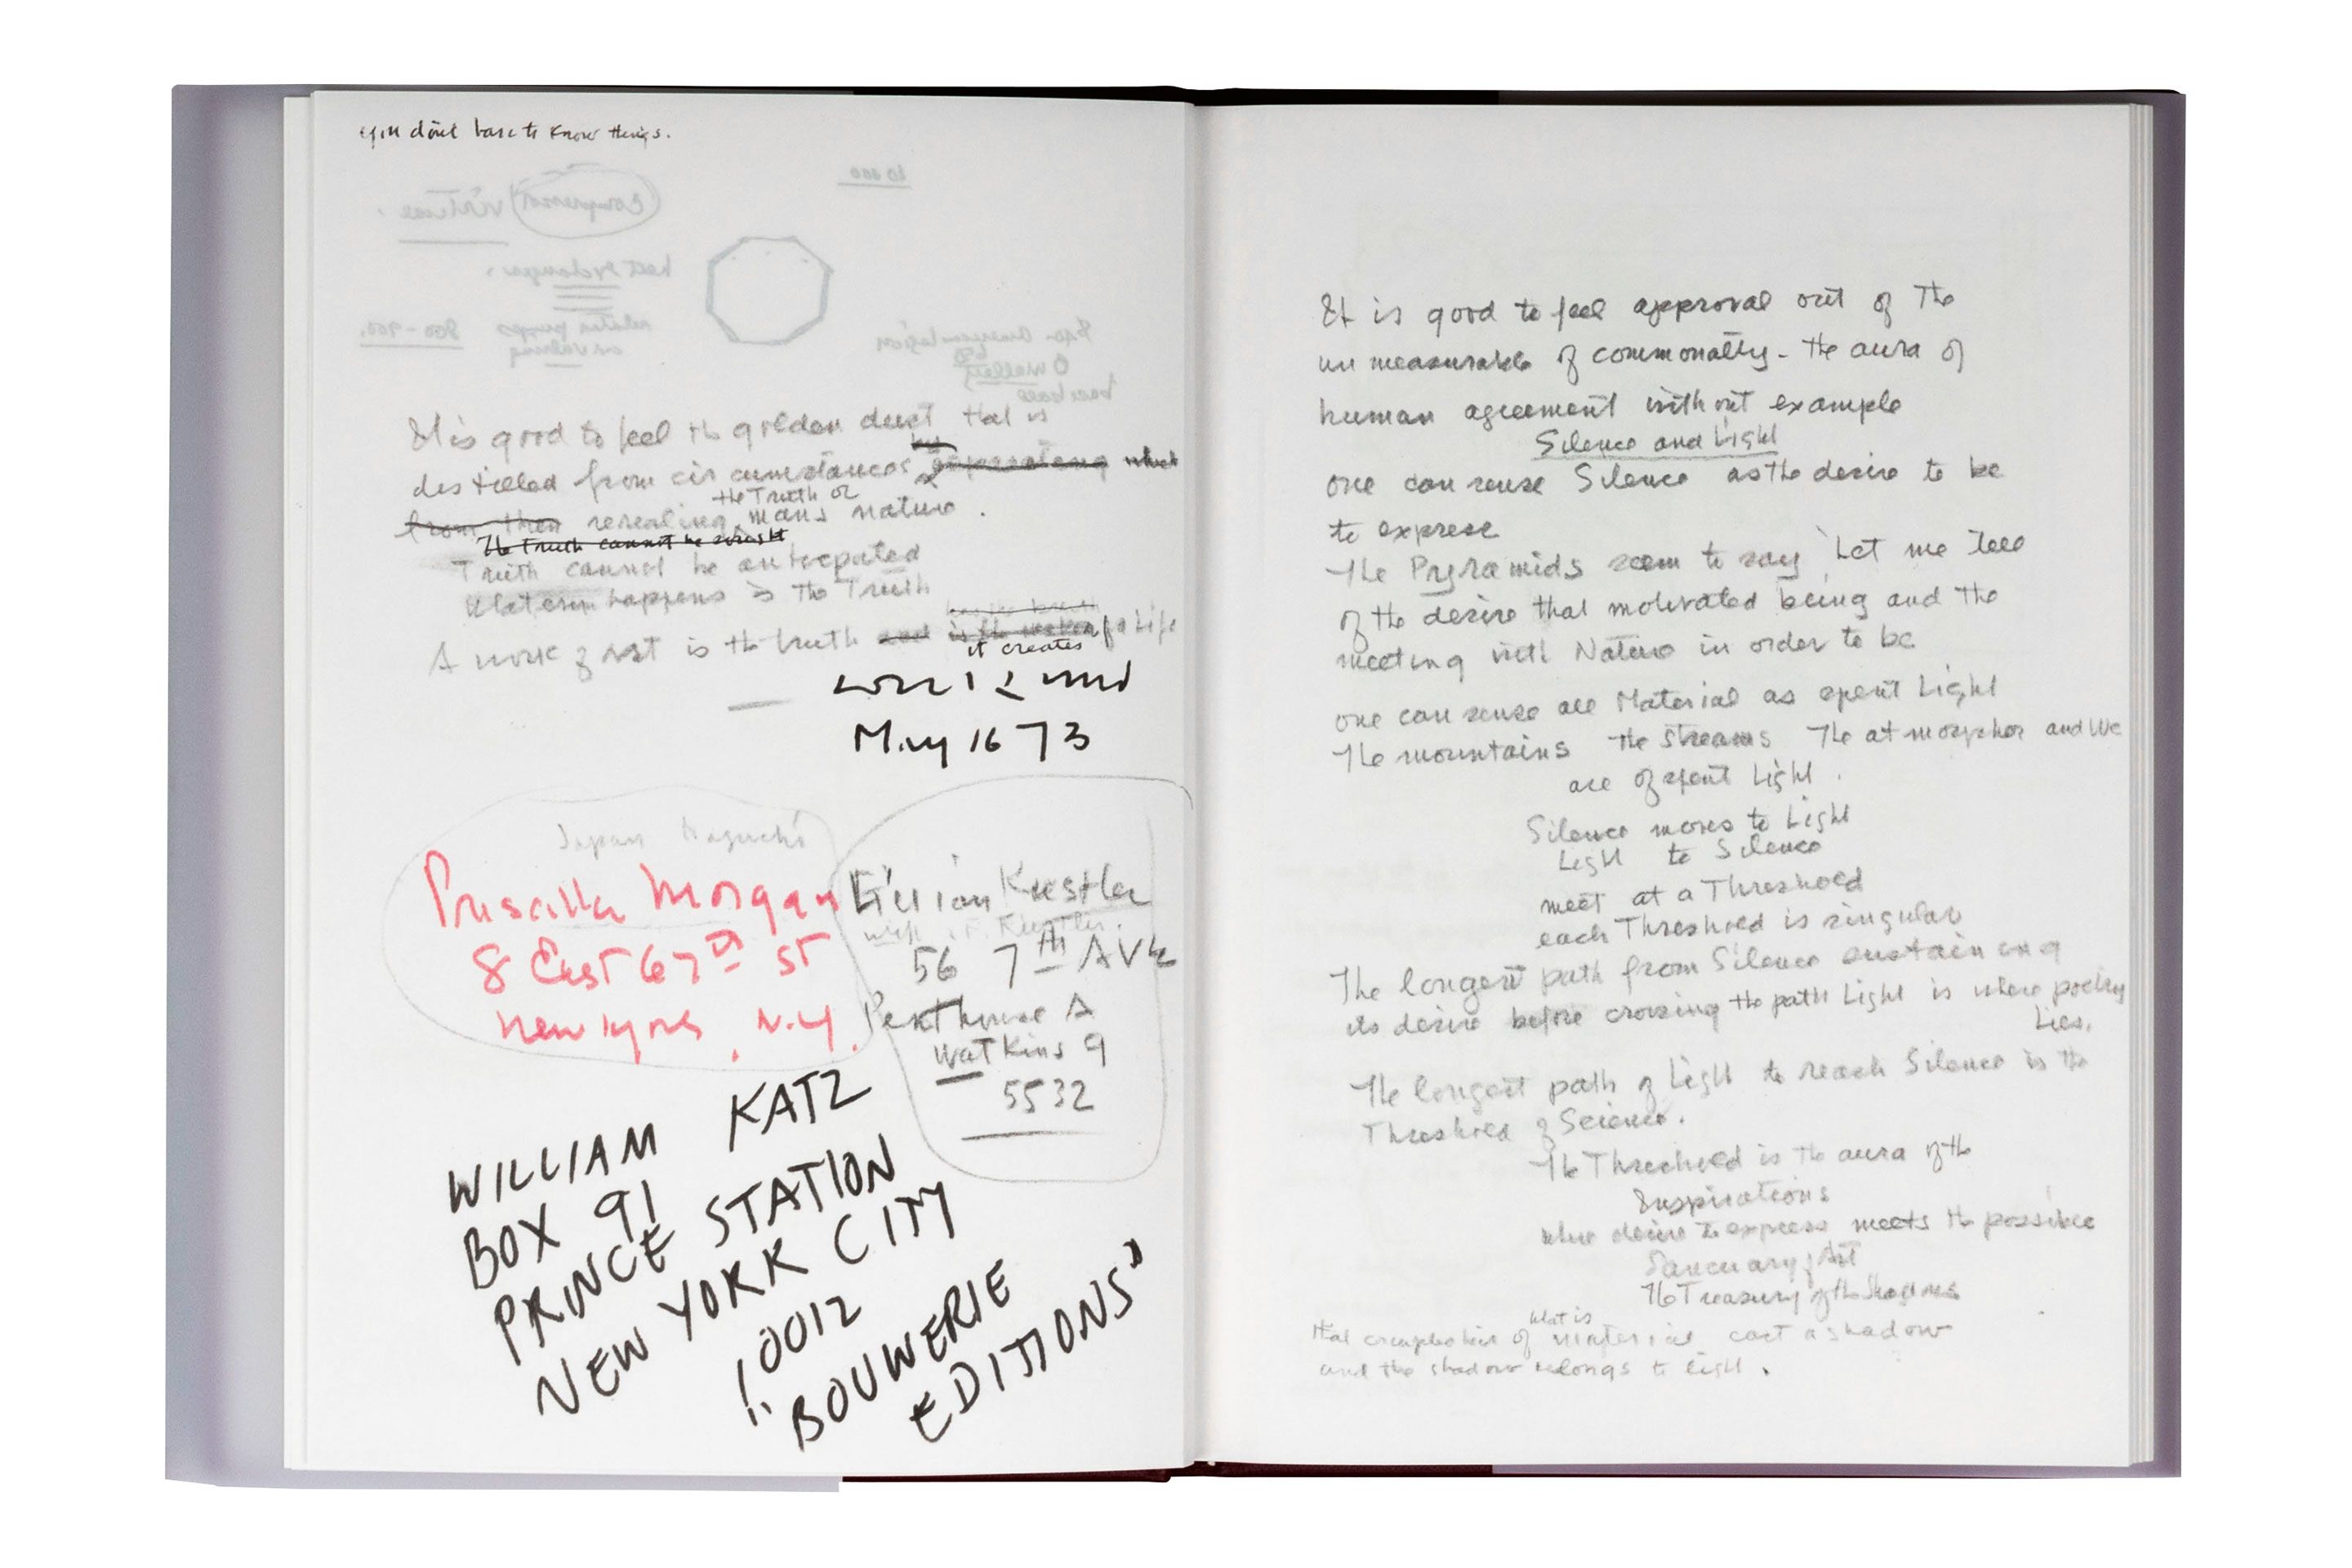 you dont have to know things.
It is good to feel the golden dust that is
distilled from circumstances
from them revealing the Truth of mans nature.
The Truth cannot be
Truth cannot be anticipated
Whatever happens is the Truth
A work of Art is the truth and is the it creates of a Life
May 16 73
Japan Noguchi
Priscilla Morgan
8 East 67th ST
New York, N.Y.
Kiesler
56 7th AVE
Penthouse A
Watkins 9
5532
WILLIAM KATZ
BOX 91
PRINCE STATION
NEW YORK CITY
10012
"BOUWERIE
EDITIONS"
It is good to feel approval out of The
unmeasurable of commonality - the aura of
human agreement without example
Silence and Light
one can sense Silence as the desire to be
to express
The Pyramids seem to say Let me tell
of the desire that motivated being and the
meeting with Nature in order to be
one can sense all Material as spent Light
The mountains The streams The atmospher and We
are of spent Light.
Silence moves to Light
Light to Silence
meet at a Threshold
each Threshold is singular
The longest path from Silence sustaining
its desire before crossing the path Light is where poetry
Lies.
The longest path of Light to reach Silence is the
Threshold of Science.
The Threshold is the aura of the
Inspirations
where desire to express meets the possible
Sancuary of Art
The Treasury of the Shadows
of what is material cast a shadow
and the shadow belongs to light.